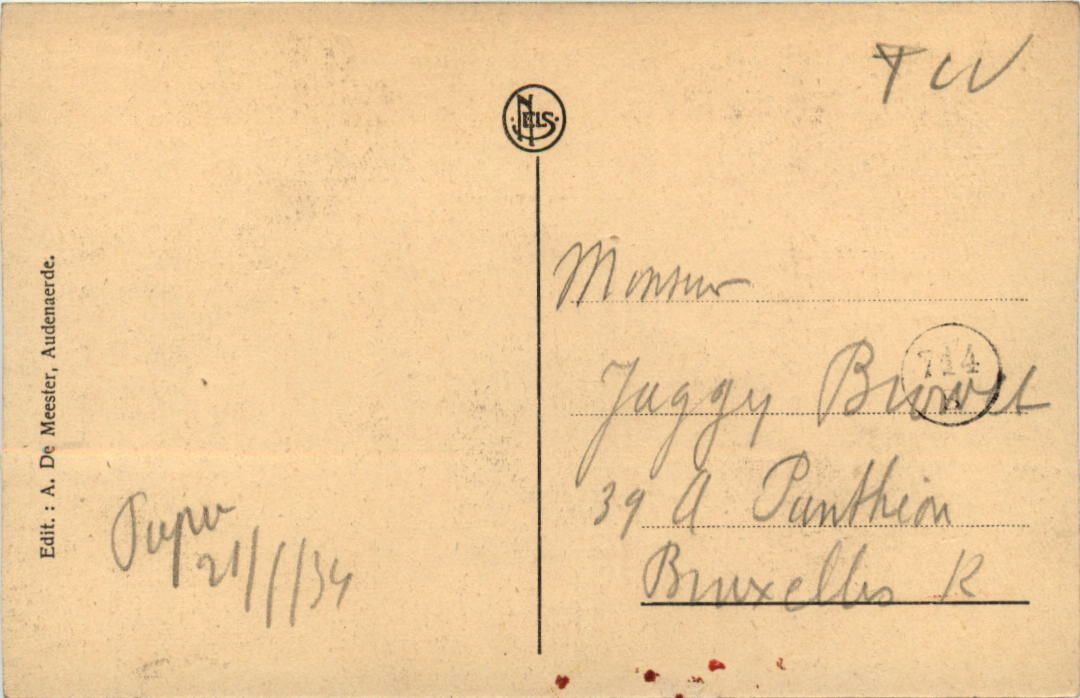 TCW
NELS
Edit. : A. De Meester, Audenaerde.
Monsieur
714
Jaggy
39 A Panthéon
Bruxelles
Papa
21/1/34